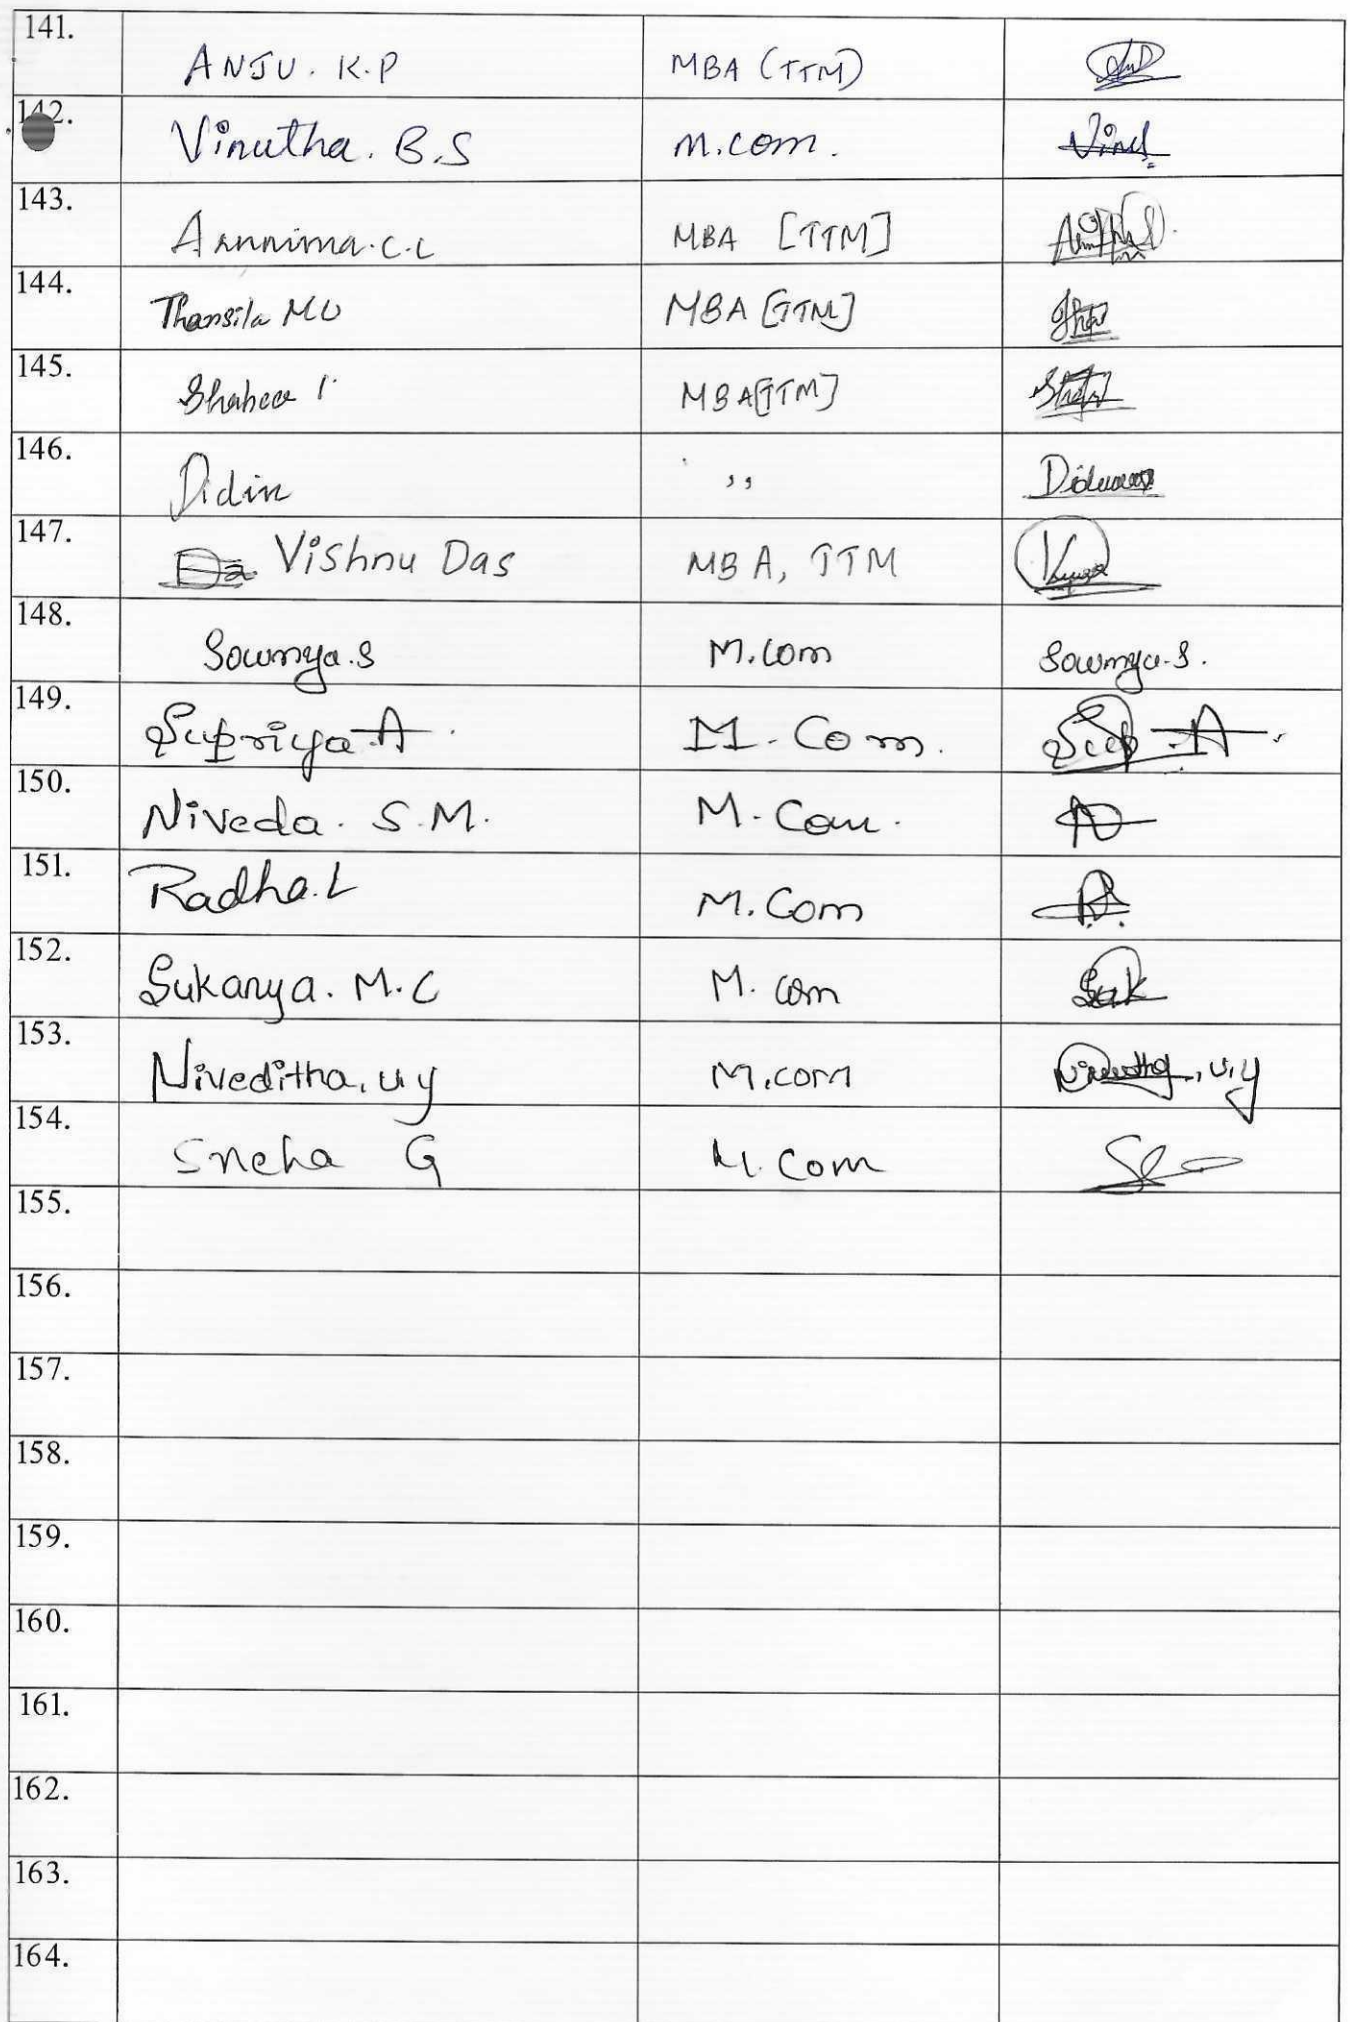 141. ANJU. K.P MBA (TTM)
142. Vinutha. B.S M.com.
143. Arunima.C.C MBA [TTM]
144. Thansila MU MBA [TTM]
145. MBA[TTM]
146. Didin ,,
147. Vishnu Das MBA, TTM
148. Sowmya.S M.Com Sowmya.S.
149. Supriya.A. M.Com. Sup.A.
150. Niveda. S.M. M.Com.
151. Radha.L M.Com
152. Sukanya. M.C M.Com Suk
153. Niveditha, U Y M.com
154. Sneha G M.Com
155.
156.
157.
158.
159.
160.
161.
162.
163.
164.